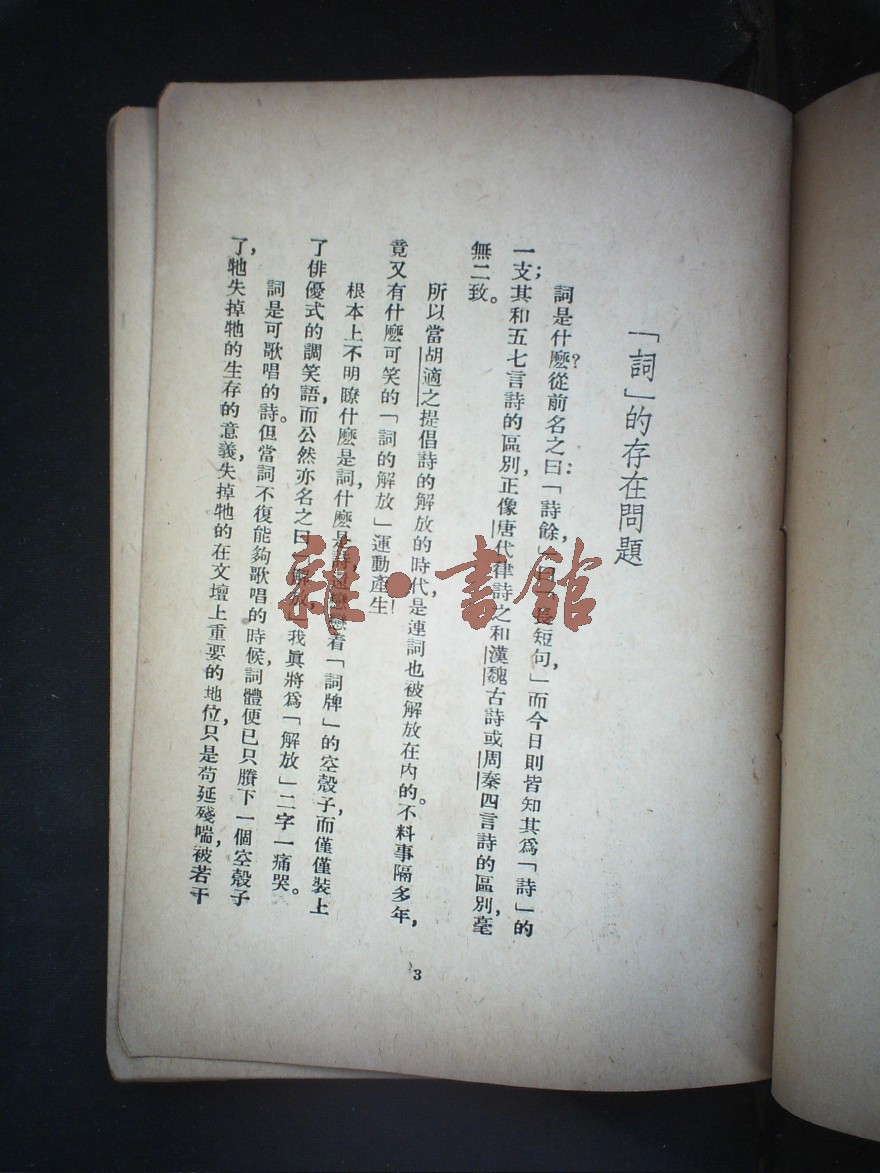 「詞」的存在問題
詞是什麼?從前名之曰:「詩餘,」曰「長短句,」而今日則皆知其爲「詩」的
一支;其和五七言詩的區別,正像唐代律詩之和漢魏古詩或周秦四言詩的區別,毫
無二致。
所以當胡適之提倡詩的解放的時代,是連詞也被解放在內的。不料事隔多年,
竟又有什麼可笑的「詞的解放」運動產生!
根本上不明瞭什麼是詞,什麼是詩,戀着「詞牌」的空殼子,而僅僅裝上
了俳優式的調笑語,而公然亦名之曰「解放,」我眞將爲「解放」二字一痛哭。
詞是可歌唱的詩。但當詞不復能夠歌唱的時候,詞體便已只賸下一個空殼子
了,牠失掉牠的生存的意義,失掉牠的在文壇上重要的地位,只是苟延殘喘,被若干
3
雜·書館